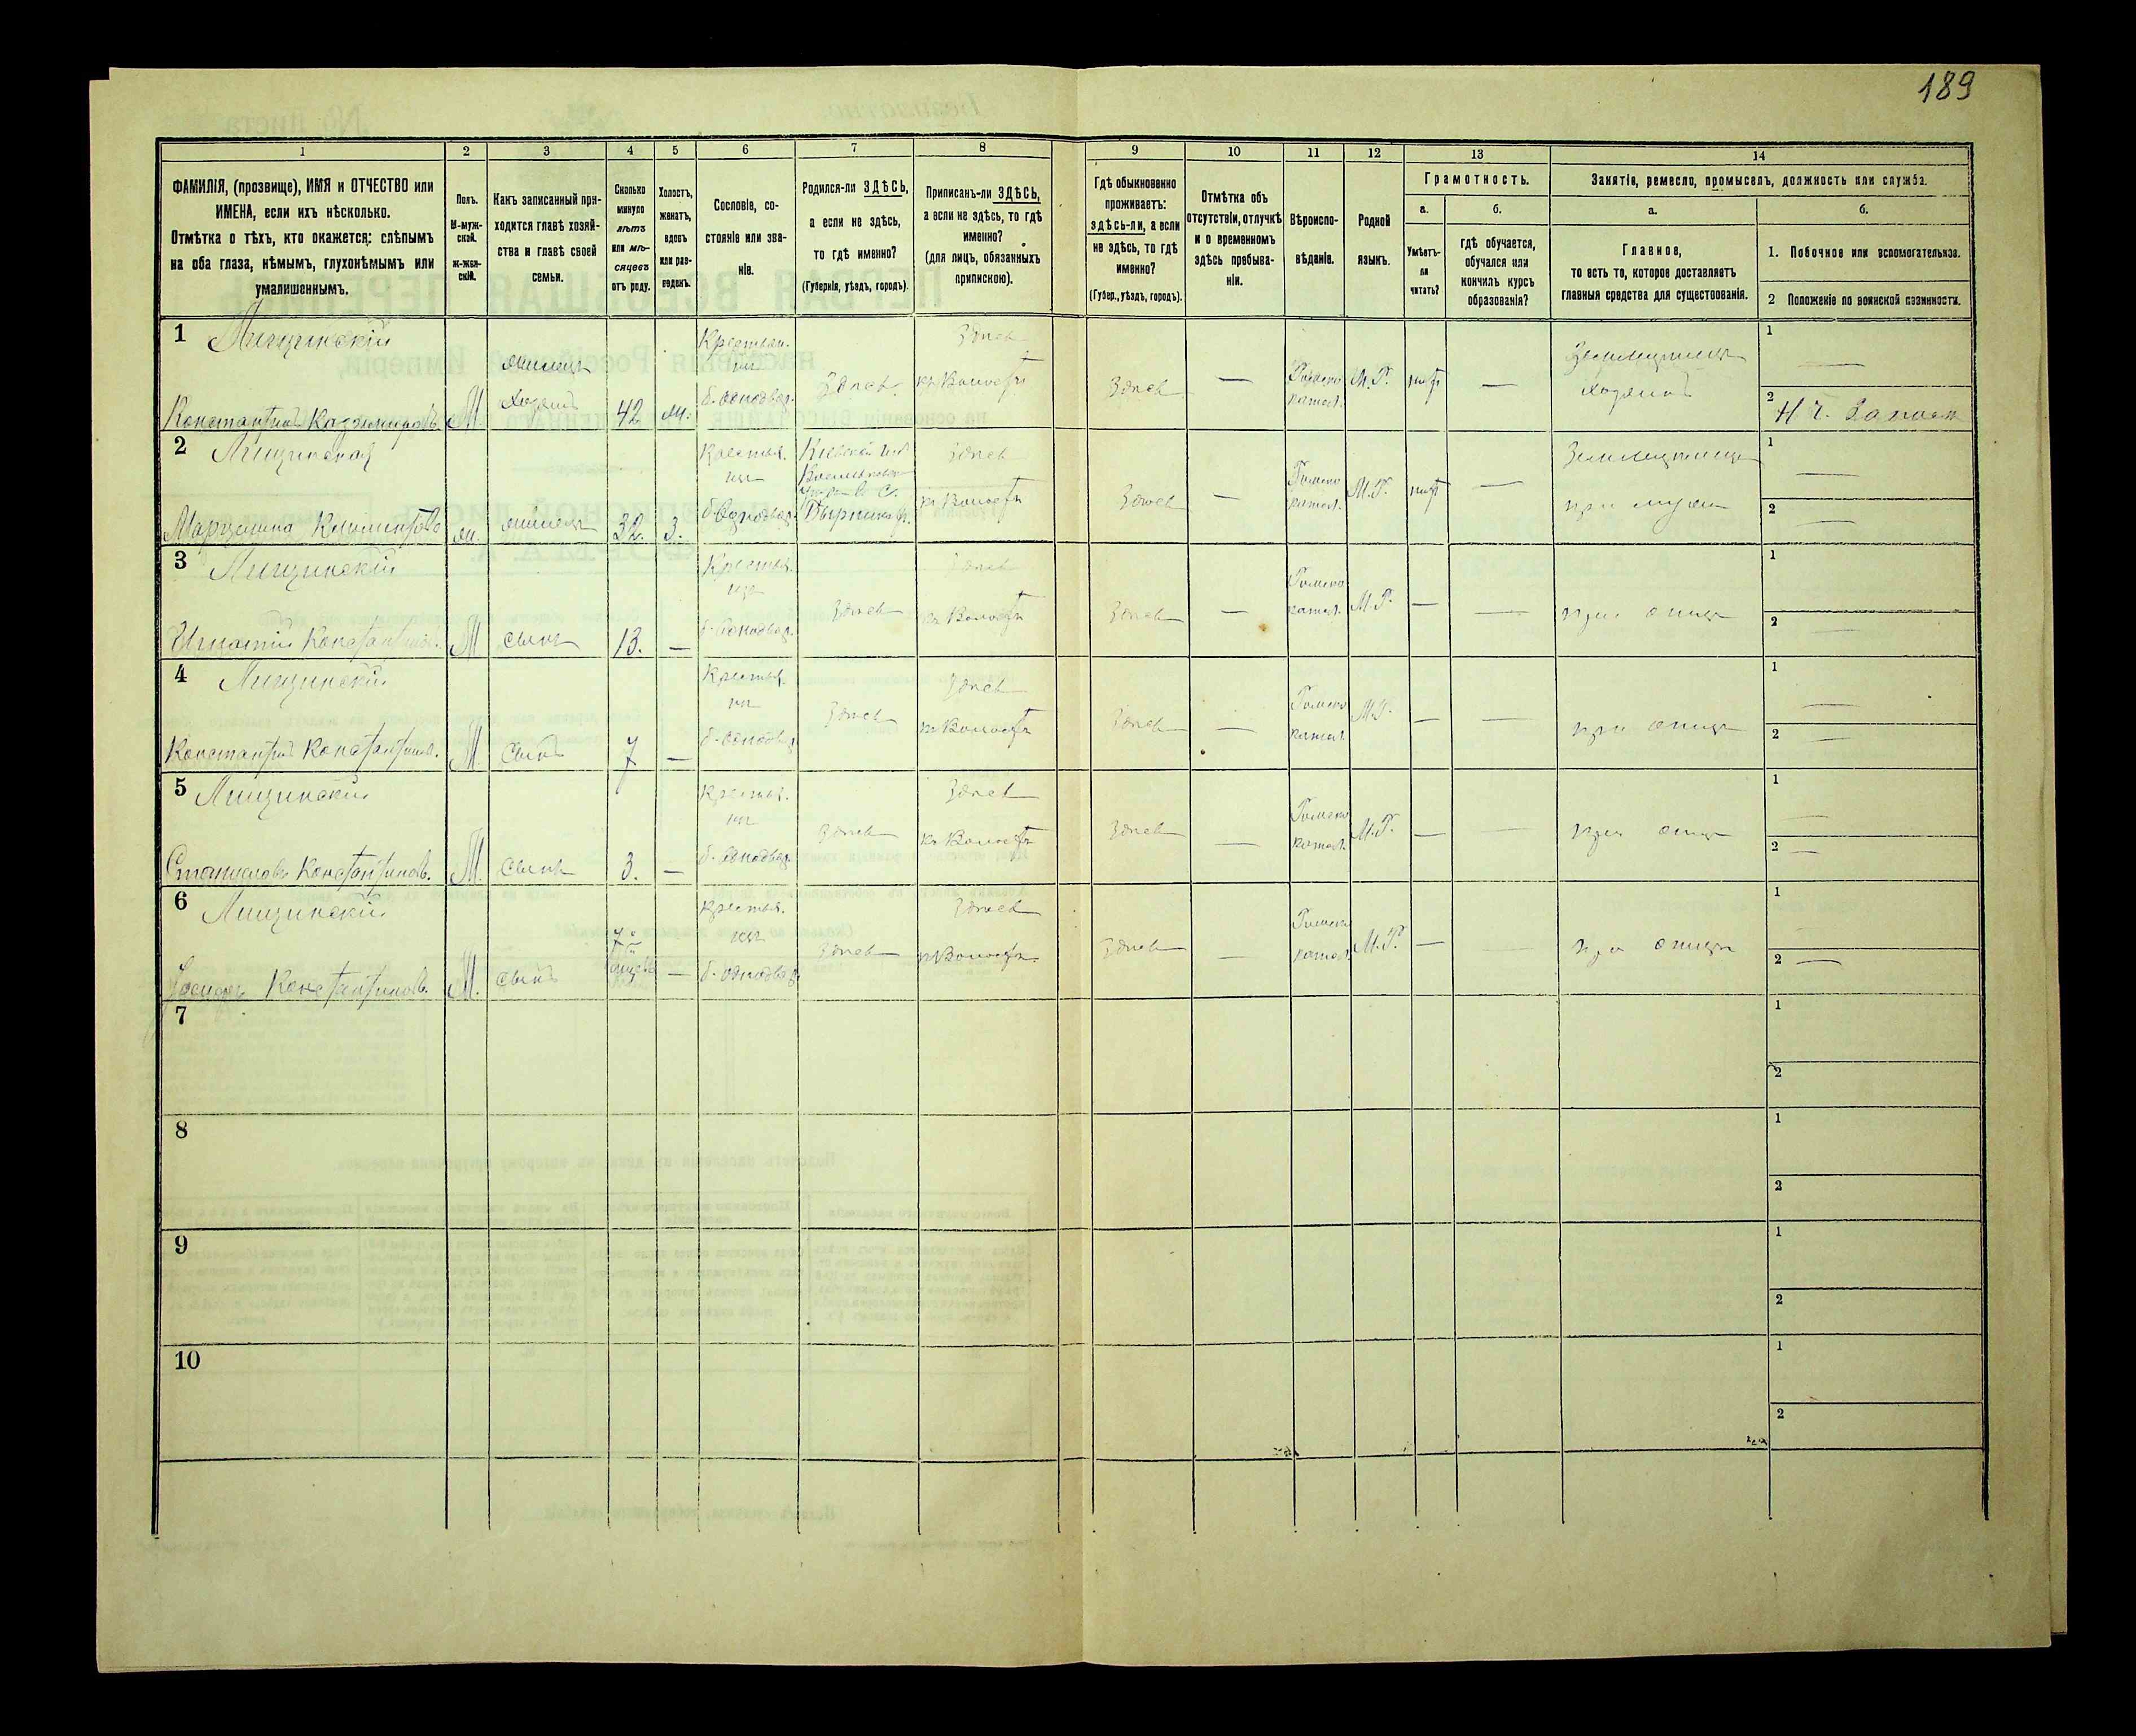 189
1 2 3 4 5 6 7 8 9 10 11 12 13 14
ФАМИЛІЯ, (прозвище), ИМЯ и ОТЧЕСТВО или
ИМЕНА, если ихъ нѣсколько.
Отмѣтка о тѣхъ, кто окажется: слѣпымъ
на оба глаза, нѣмымъ, глухонѣмымъ или
умалишеннымъ.
Полъ.
М-муж-
ской.
Ж-жен-
скій.
Какъ записанный при-
ходится главѣ хозяй-
ства и главѣ своей
семьи.
Сколько
минуло
лѣтъ
или мѣ-
сяцевъ
отъ роду.
Холостъ,
женатъ,
вдовъ
или раз-
веденъ.
Сословіе, со-
стояніе или зва-
ніе.
Родился-ли ЗДѢСЬ,
а если не здѣсь,
то гдѣ именно?
(Губернія, уѣздъ, городъ).
Приписанъ-ли ЗДѢСЬ,
а если не здѣсь, то гдѣ
именно?
(для лицъ, обязанныхъ
припискою).
Гдѣ обыкновенно
проживаетъ:
здѣсь-ли, а если
не здѣсь, то гдѣ
именно?
(Губер., уѣздъ, городъ).
Отмѣтка объ
отсутствіи, отлучкѣ
и о временномъ
здѣсь пребыва-
ніи.
Вѣроиспо-
вѣданіе.
Родной
языкъ.
Грамотность.
а.
Умѣетъ-
ли
читать?
б.
гдѣ обучается,
обучался или
кончилъ курсъ
образованія?
Занятіе, ремесло, промыселъ, должность или служба.
а.
Главное,
то есть то, которое доставляетъ
главныя средства для существованія.
б.
1. Побочное или вспомогательное.
2 Положеніе по воинской повинности.
1 Лищинскій
Константинъ Казиміровъ
М.
Хозяинъ
42
ж.
Крестьян.
б. Однодвор.
Здѣсь
Здѣсь
къ Волости
Здѣсь
—
Римско
катол.
М.Р.
нѣтъ
—
Хозяинъ
1 —
2
2 Лищинская
Марцелина Климентова
ж.
32
З.
Крестья.
б. Однодвор.
Кіевской губ
Здѣсь
къ Волости
Здѣсь
—
Римско
катол.
М.Р.
нѣтъ
—
при мужѣ
1 —
2 —
3 Лищинскій
Игнатій Константинов.
М
сынъ
13.
—
Крестья.
б. Однодвор.
Здѣсь
Здѣсь
къ Волости
Здѣсь
—
Римско
катол.
М.Р.
—
—
при отцѣ
1 —
2 —
4 Лищинскій
Константинъ Константинов.
М.
Сынъ
7
—
Крестья.
б. Однодвор.
Здѣсь
Здѣсь
къ Волости
Здѣсь
—
Римско
катол.
М.Р.
—
—
при отцѣ
1 —
2 —
5 Лищинскій
Станиславъ Константинов.
М.
сынъ
3.
—
Крестья.
б. Однодвор.
Здѣсь
Здѣсь
къ Волости
Здѣсь
—
Римско
катол.
М.Р.
—
—
при отцѣ
1 —
2 —
6 Лищинскій
Іосифъ Константинов.
М.
сынъ
—
Крестья.
б. Однодвор.
Здѣсь
Здѣсь
къ Волости
Здѣсь
—
Римско
катол.
М.Р.
—
—
при отцѣ
1 —
2 —
7
1
2
8
1
2
9
1
2
10
1
2